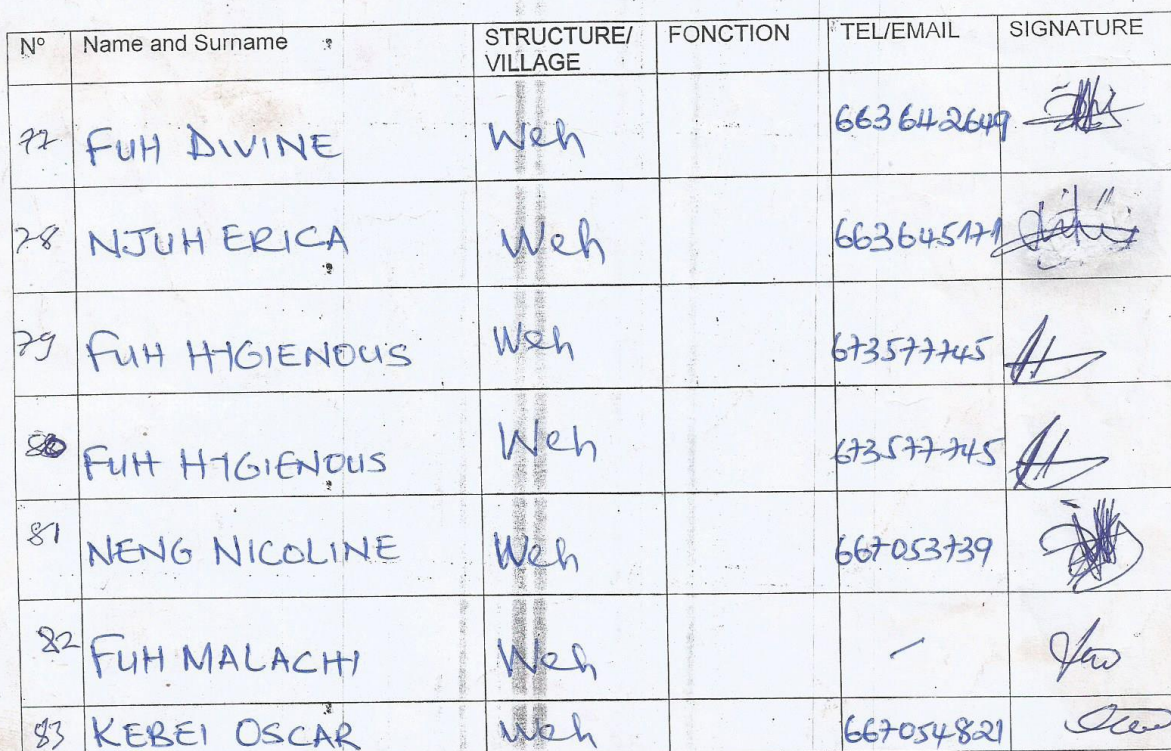 N° Name and Surname STRUCTURE/ VILLAGE FONCTION TEL/EMAIL SIGNATURE
77 FUH DIVINE Weh 663642649
78 NJUH ERICA Weh 663645171
79 FUH HYGIENOUS Weh 673577745
80 FUH HYGIENOUS Weh 673577745
81 NENG NICOLINE Weh 667053739
82 FUH MALACHI Weh /
83 KEBEI OSCAR Weh 667054821